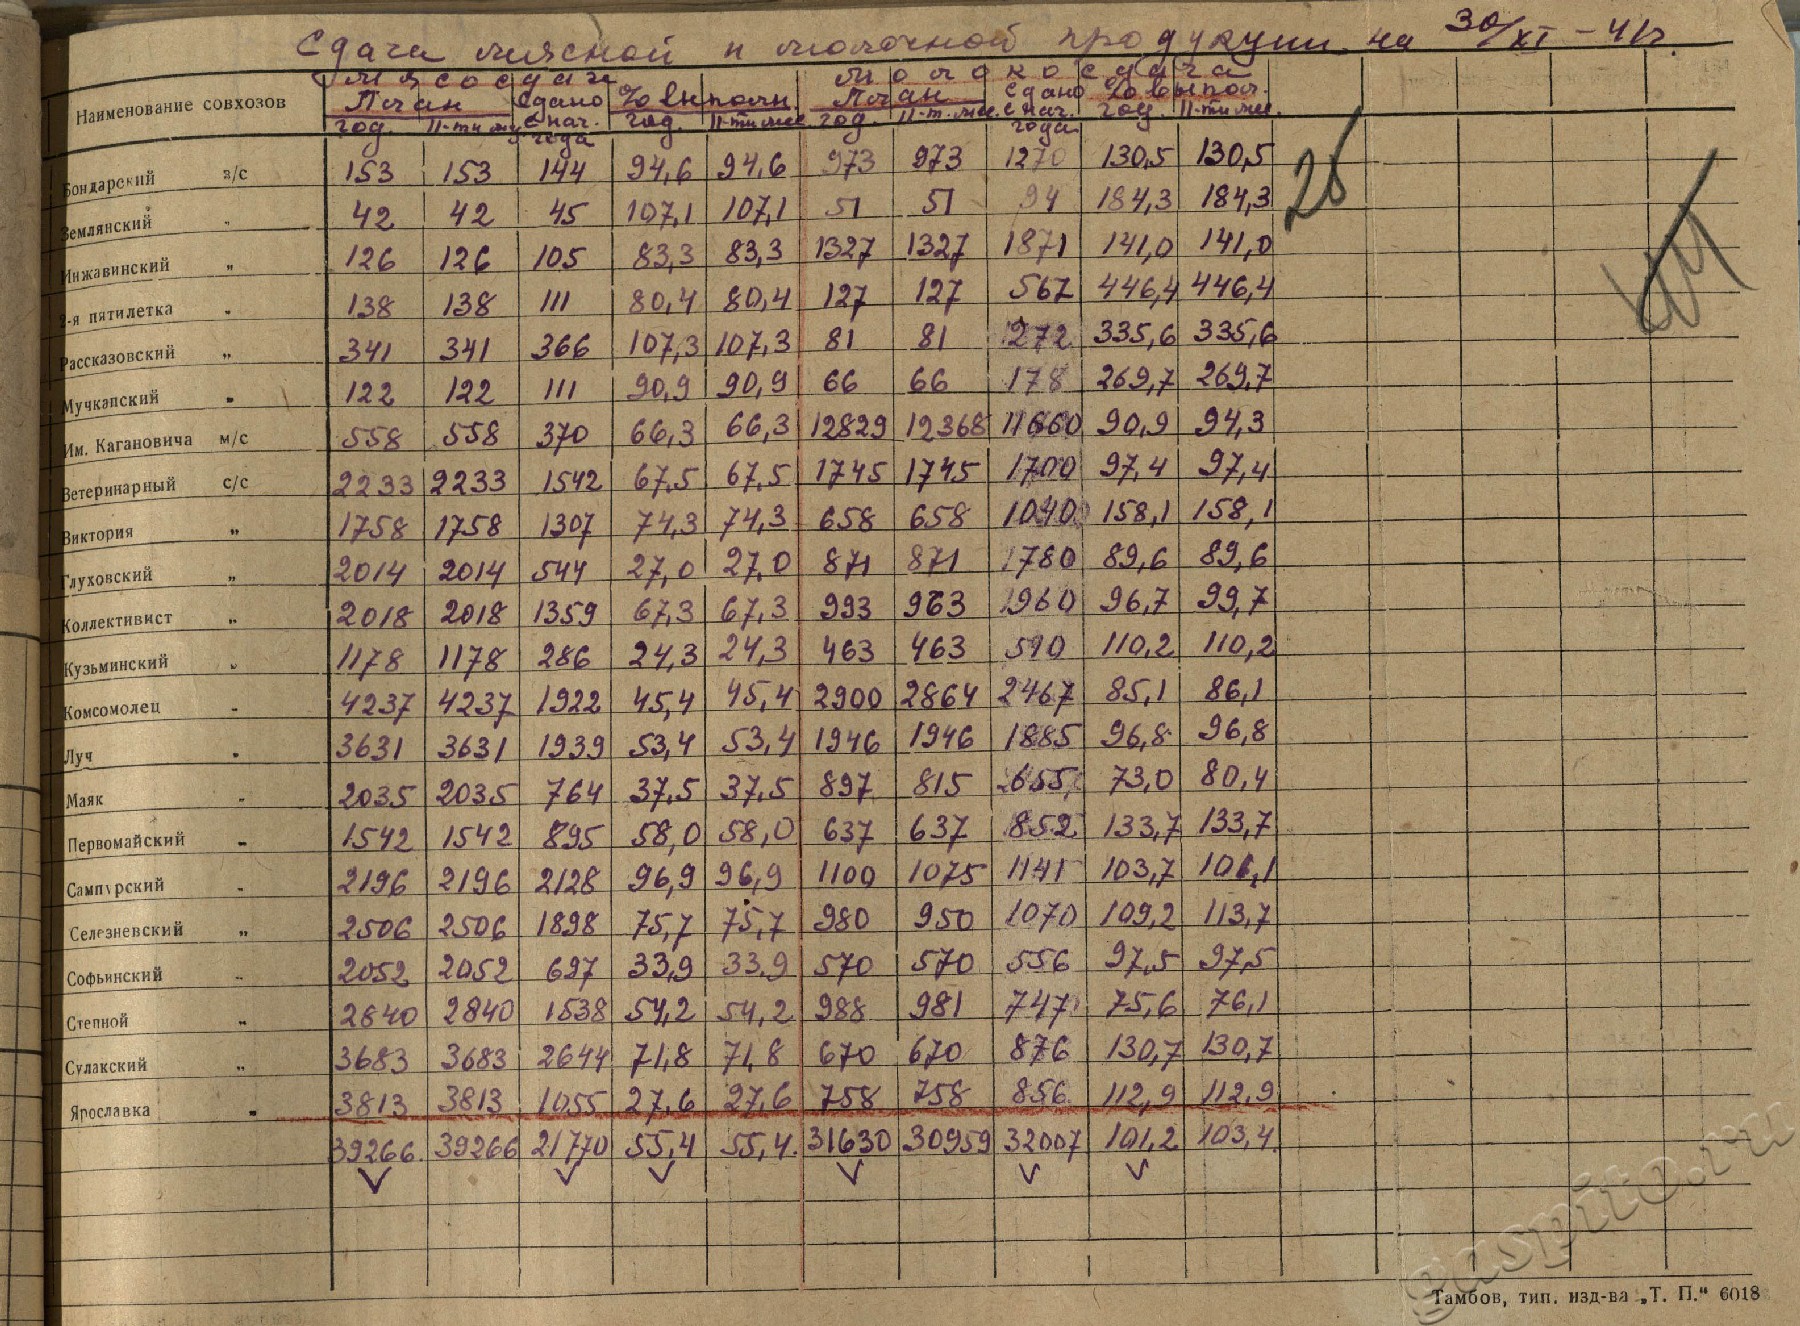 Сдача мясной и молочной продукции на 30/XI – 41 г.
Наименование совхозов Мясосдача Молокосдача
План Сдано с нач. года % выполн. План Сдано с нач. года % выпол.
год. 11-ти мес. год. 11-ти мес. год. 11-т. мес. год. 11-ти мес.
Бондарский з/с 153 153 144 94,6 94,6 973 973 1270 130,5 130,5
Землянский „ 42 42 45 107,1 107,1 51 51 94 184,3 184,3
Инжавинский „ 126 126 105 83,3 83,3 1327 1327 1871 141,0 141,0
2-я пятилетка „ 138 138 111 80,4 80,4 127 127 567 446,4 446,4
Рассказовский „ 341 341 366 107,3 107,3 81 81 272 335,6 335,6
Мучкапский „ 122 122 111 90,9 90,9 66 66 178 269,7 269,7
Им. Кагановича м/с 558 558 370 66,3 66,3 12829 12368 11660 90,9 94,3
Ветеринарный с/с 2233 2233 1542 67,5 67,5 1745 1745 1700 97,4 97,4
Виктория „ 1758 1758 1307 74,3 74,3 658 658 1040 158,1 158,1
Глуховский „ 2014 2014 544 27,0 27,0 871 871 1780 89,6 89,6
Коллективист „ 2018 2018 1359 67,3 67,3 993 963 1960 96,7 99,7
Кузьминский „ 1178 1178 286 24,3 24,3 463 463 510 110,2 110,2
Комсомолец „ 4237 4237 1922 45,4 45,4 2900 2864 2467 85,1 86,1
Луч „ 3631 3631 1939 53,4 53,4 1946 1946 1885 96,8 96,8
Маяк „ 2035 2035 764 37,5 37,5 897 815 655 73,0 80,4
Первомайский „ 1542 1542 895 58,0 58,0 637 637 852 133,7 133,7
Сампурский „ 2196 2196 2128 96,9 96,9 1100 1075 1141 103,7 106,1
Селезневский „ 2506 2506 1898 75,7 75,7 980 950 1070 109,2 113,7
Софьинский „ 2052 2052 697 33,9 33,9 570 570 556 97,5 97,5
Степной „ 2840 2840 1538 54,2 54,2 988 981 747 75,6 76,1
Сулакский „ 3683 3683 2644 71,8 71,8 670 670 876 130,7 130,7
Ярославка „ 3813 3813 1055 27,6 27,6 758 758 856 112,9 112,9
39266. 39266 21770 55,4 55,4. 31630 30959 32007 101,2 103,4.
gaspito.ru
Тамбов, тип. изд-ва „Т. П.“ 6018